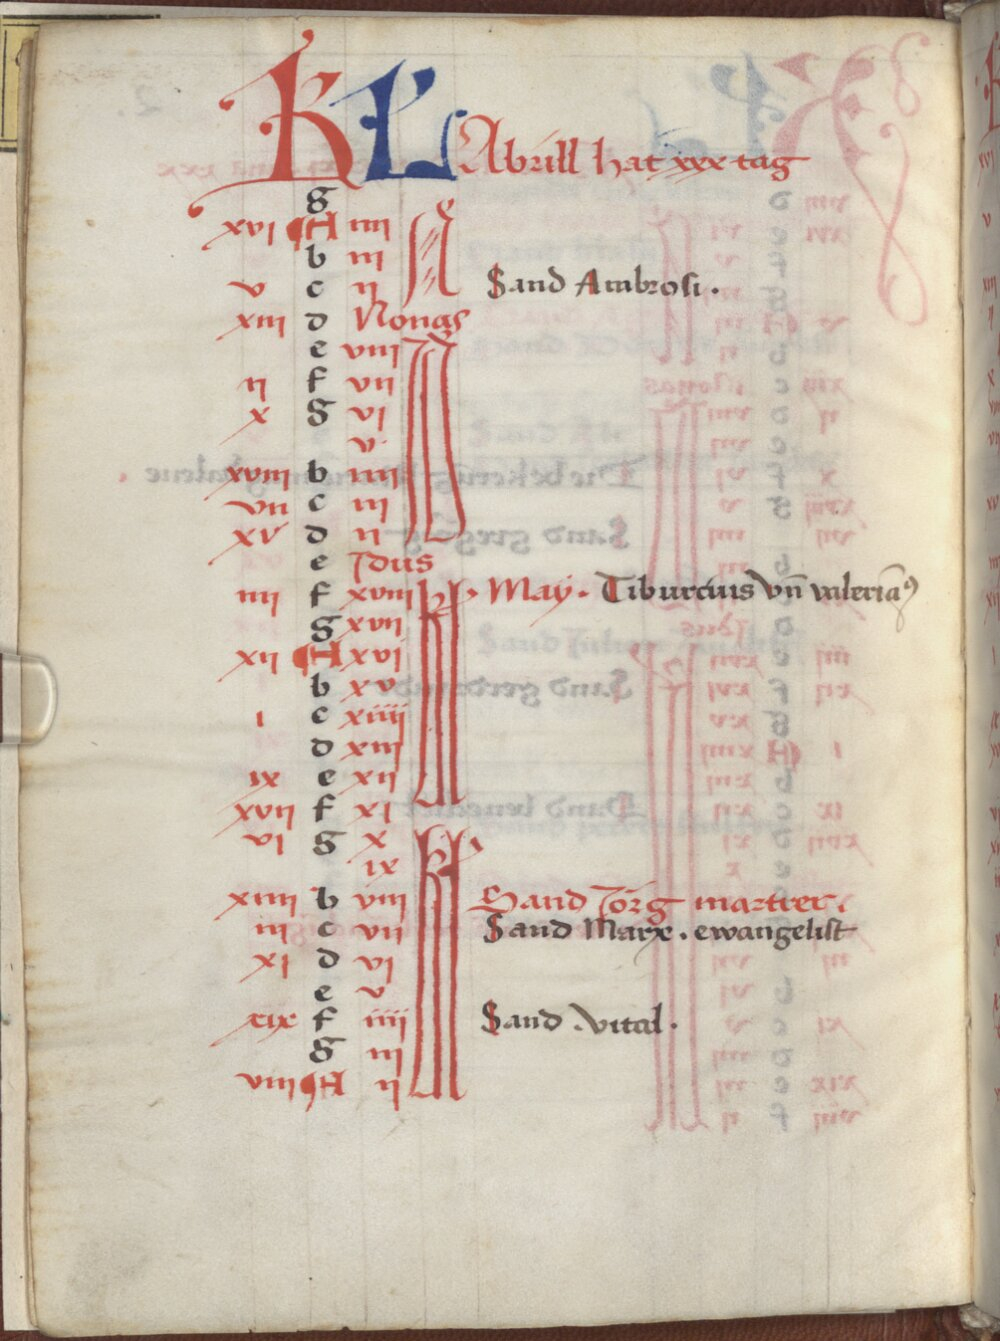 KL Abrill hat xxx tag
g
xvi A iiii N
b iii
v c ii Sand Ambrosi.
xiii d Nonas
e viii
ii f vii
x g vi
v
xviii b iiii
vii c iii
xv d ii
e Idus
iiii f xviii kl. May. Tiburcius vn̄ valeriāꝰ
g xvii
xii A xvi
b xv
i c xiiii
d xiii
ix e xii
xvii f xi
vi g x
ix
xiiii b viii Sand Jörg martrer.
iii c vii Sand Marx. ewangelist
xi d vi
e v
xix f iiii Sand .vital.
g iii
viii A ii